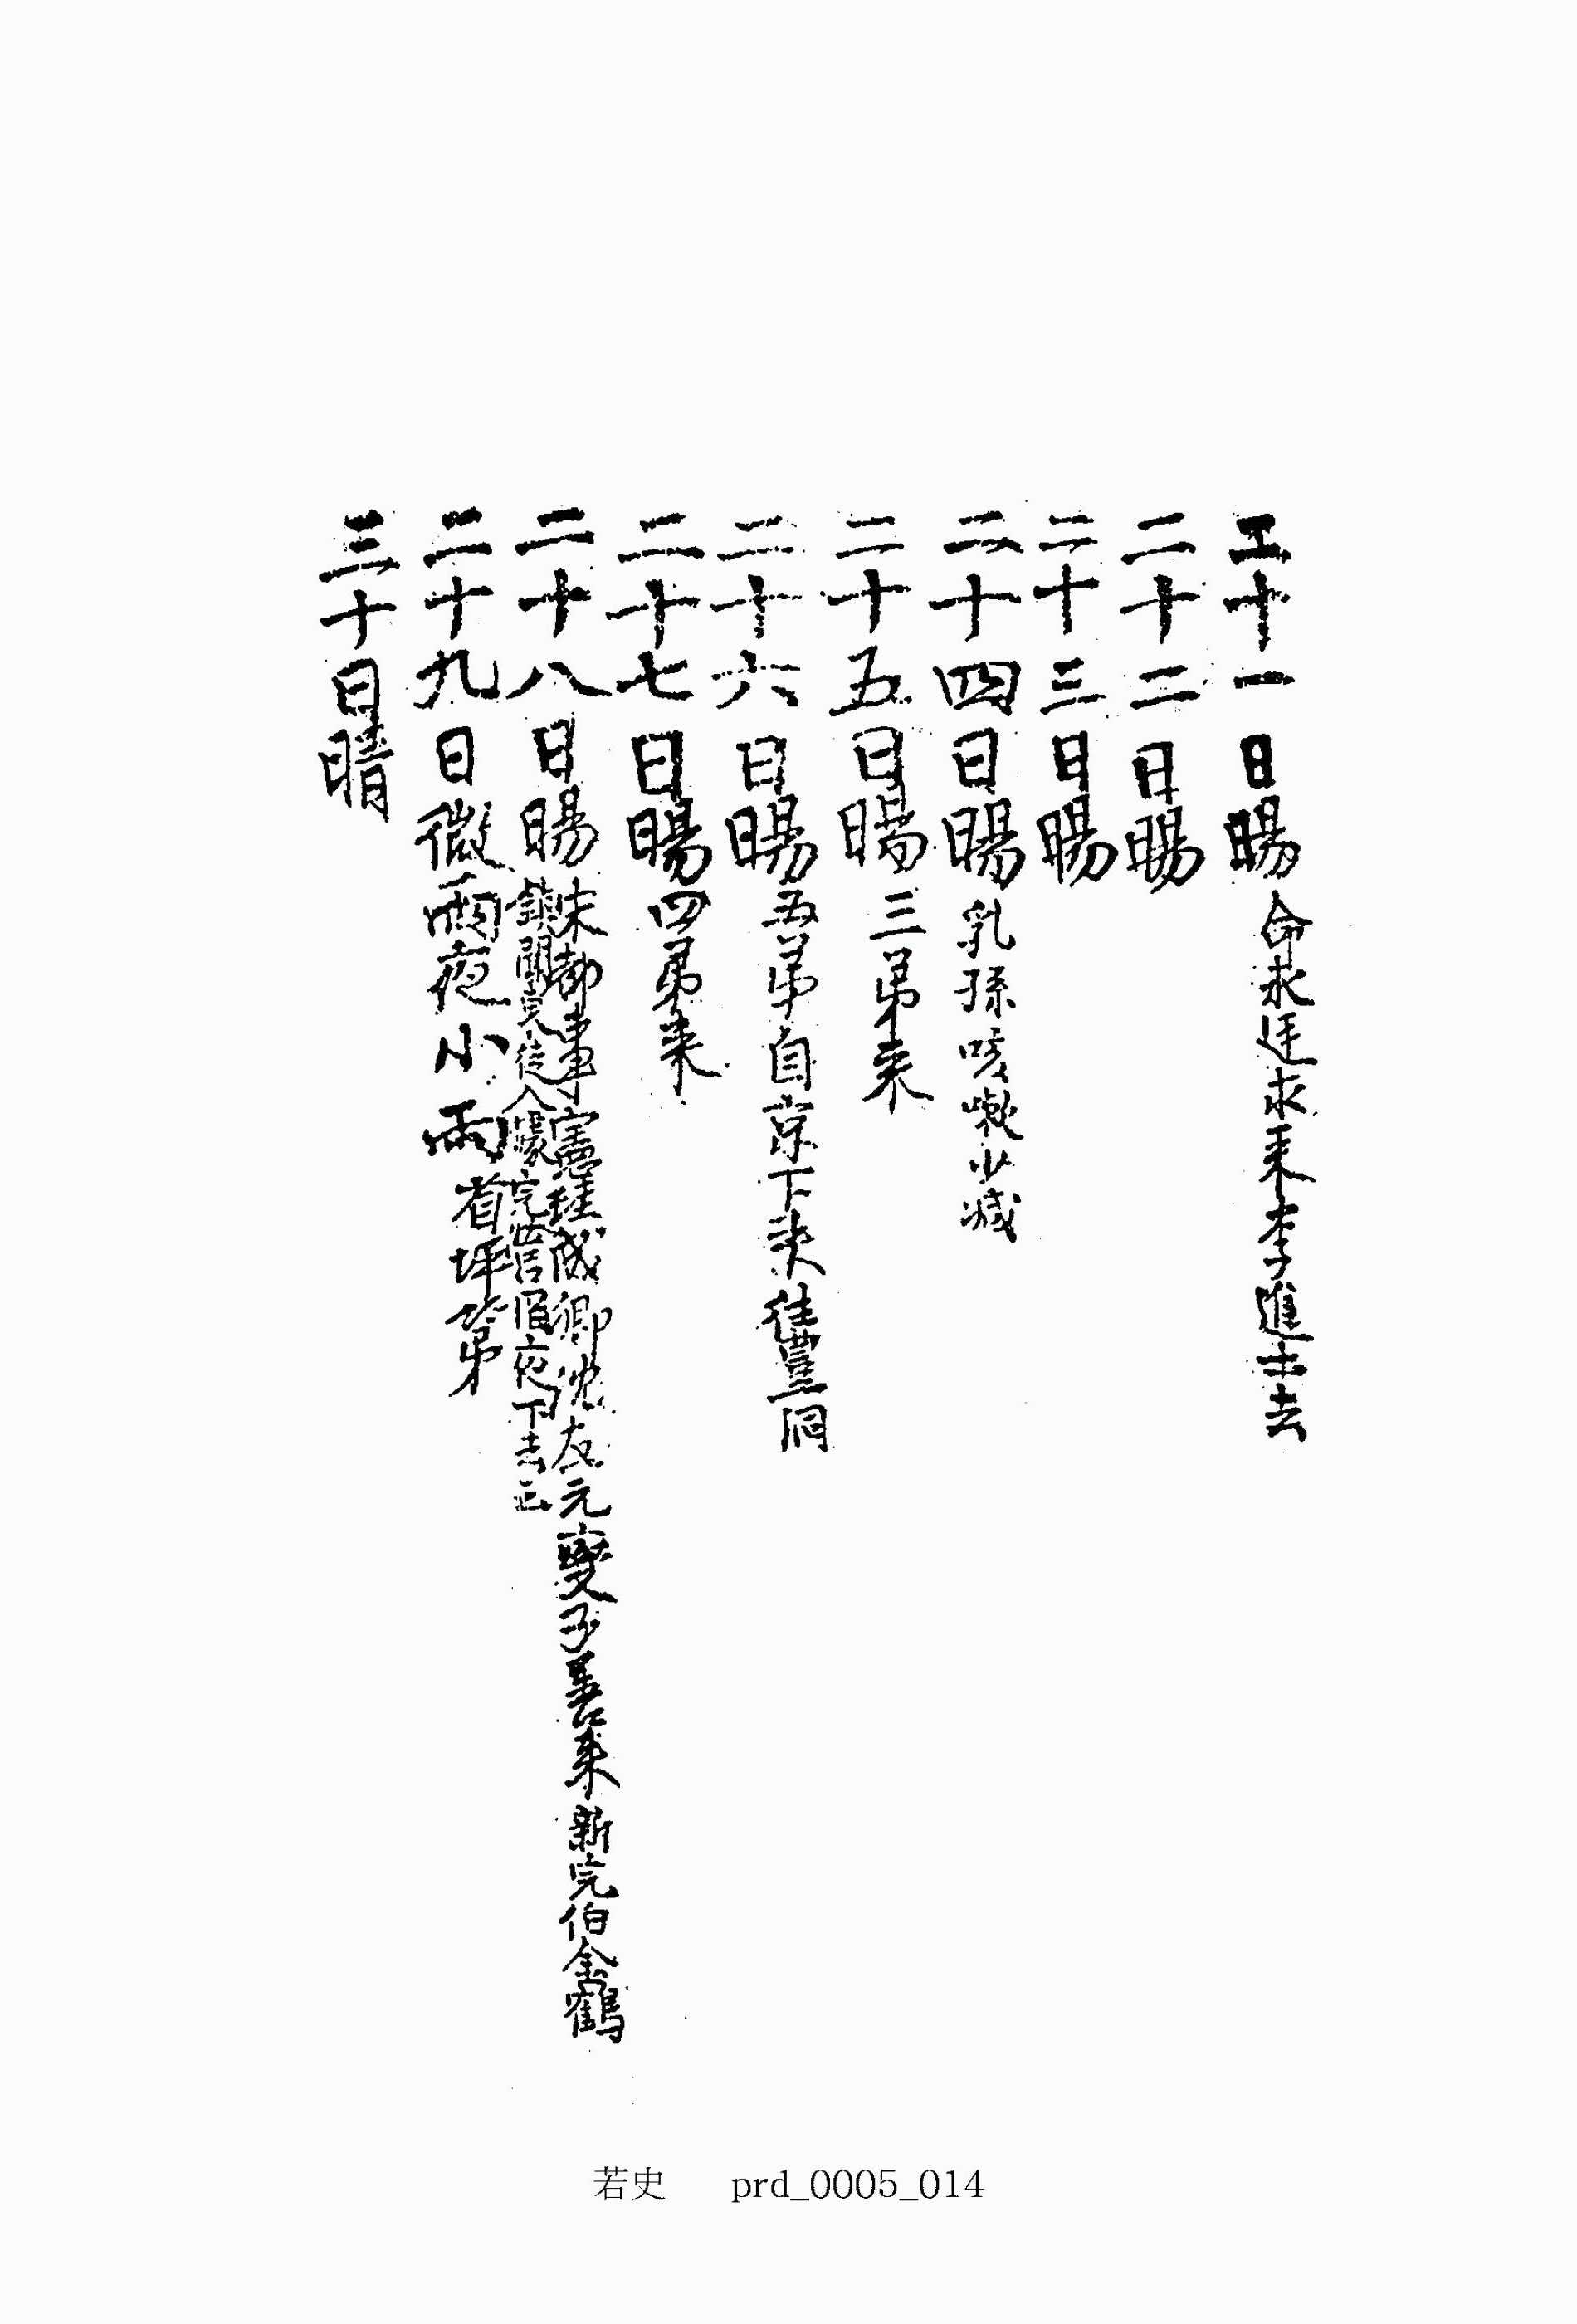 二十一日暘 命永廷永來李進士去
二十二日暘
二十三日暘
二十四日暘 乳孫咳嗽少减
二十五日暘 三弟来
二十六日暘 五弟自京下来往豊洞
二十七日暘 四弟来
二十八日暘 宋都事憲珪成卿沈友元燮子善来新完伯金鶴
鎮關 夜下去云
二十九日微雨夜小雨 省坪第
三十日晴
若史 prd_0005_014